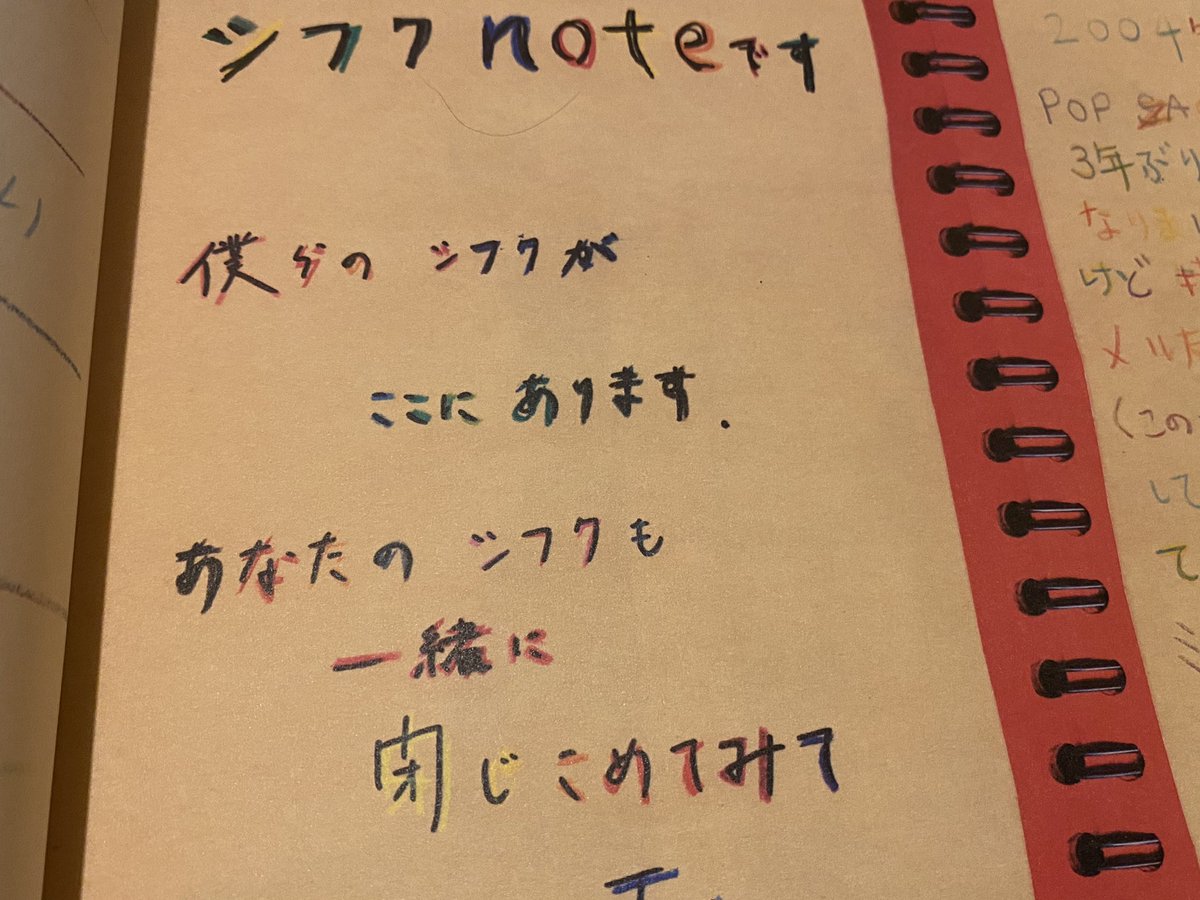 シフクnoteです
僕らのシフクが
ここにあります.
あなたのシフクも
一緒に
閉じこめてみて
2004
POP SA
3年ぶり
なりまし
けどギ
メルた
(この
して
て